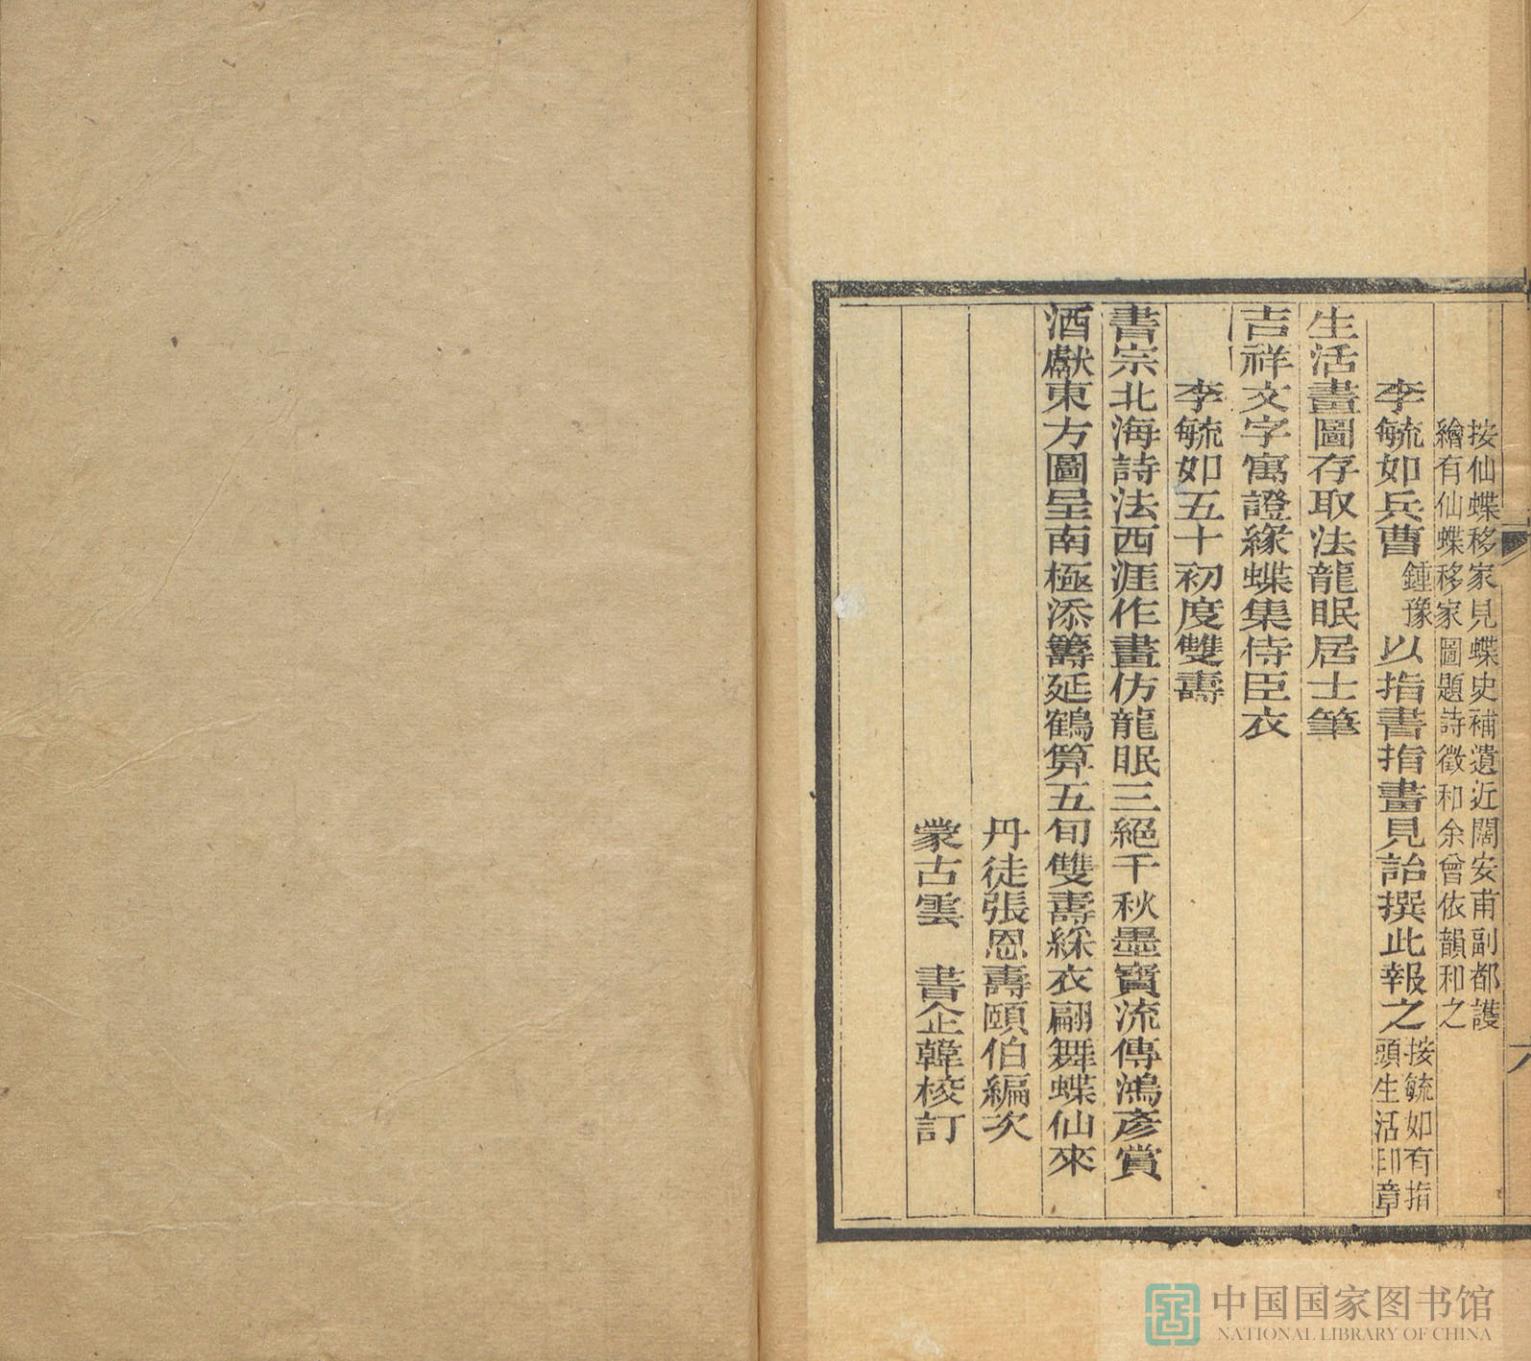 按仙蝶移家見蝶史補遺近闊安甫副都護
繪有仙蝶移家圖題詩徵和余曾依韻和之
李毓如兵曹鍾豫以指書指畫見詒撰此報之按毓如有指
頭生活印章
生活畫圖存取法龍眠居士筆
吉祥文字寓證緣蝶集侍臣衣
李毓如五十初度雙壽
書宗北海詩法西涯作畫仿龍眠三絕千秋墨寶流傳鴻彥賞
酒獻東方圖呈南極添籌延鶴算五旬雙壽綵衣翩舞蝶仙來
丹徒張恩壽頤伯編次
蒙古雲　書企韓校訂
中国国家图书馆
NATIONAL LIBRARY OF CHINA